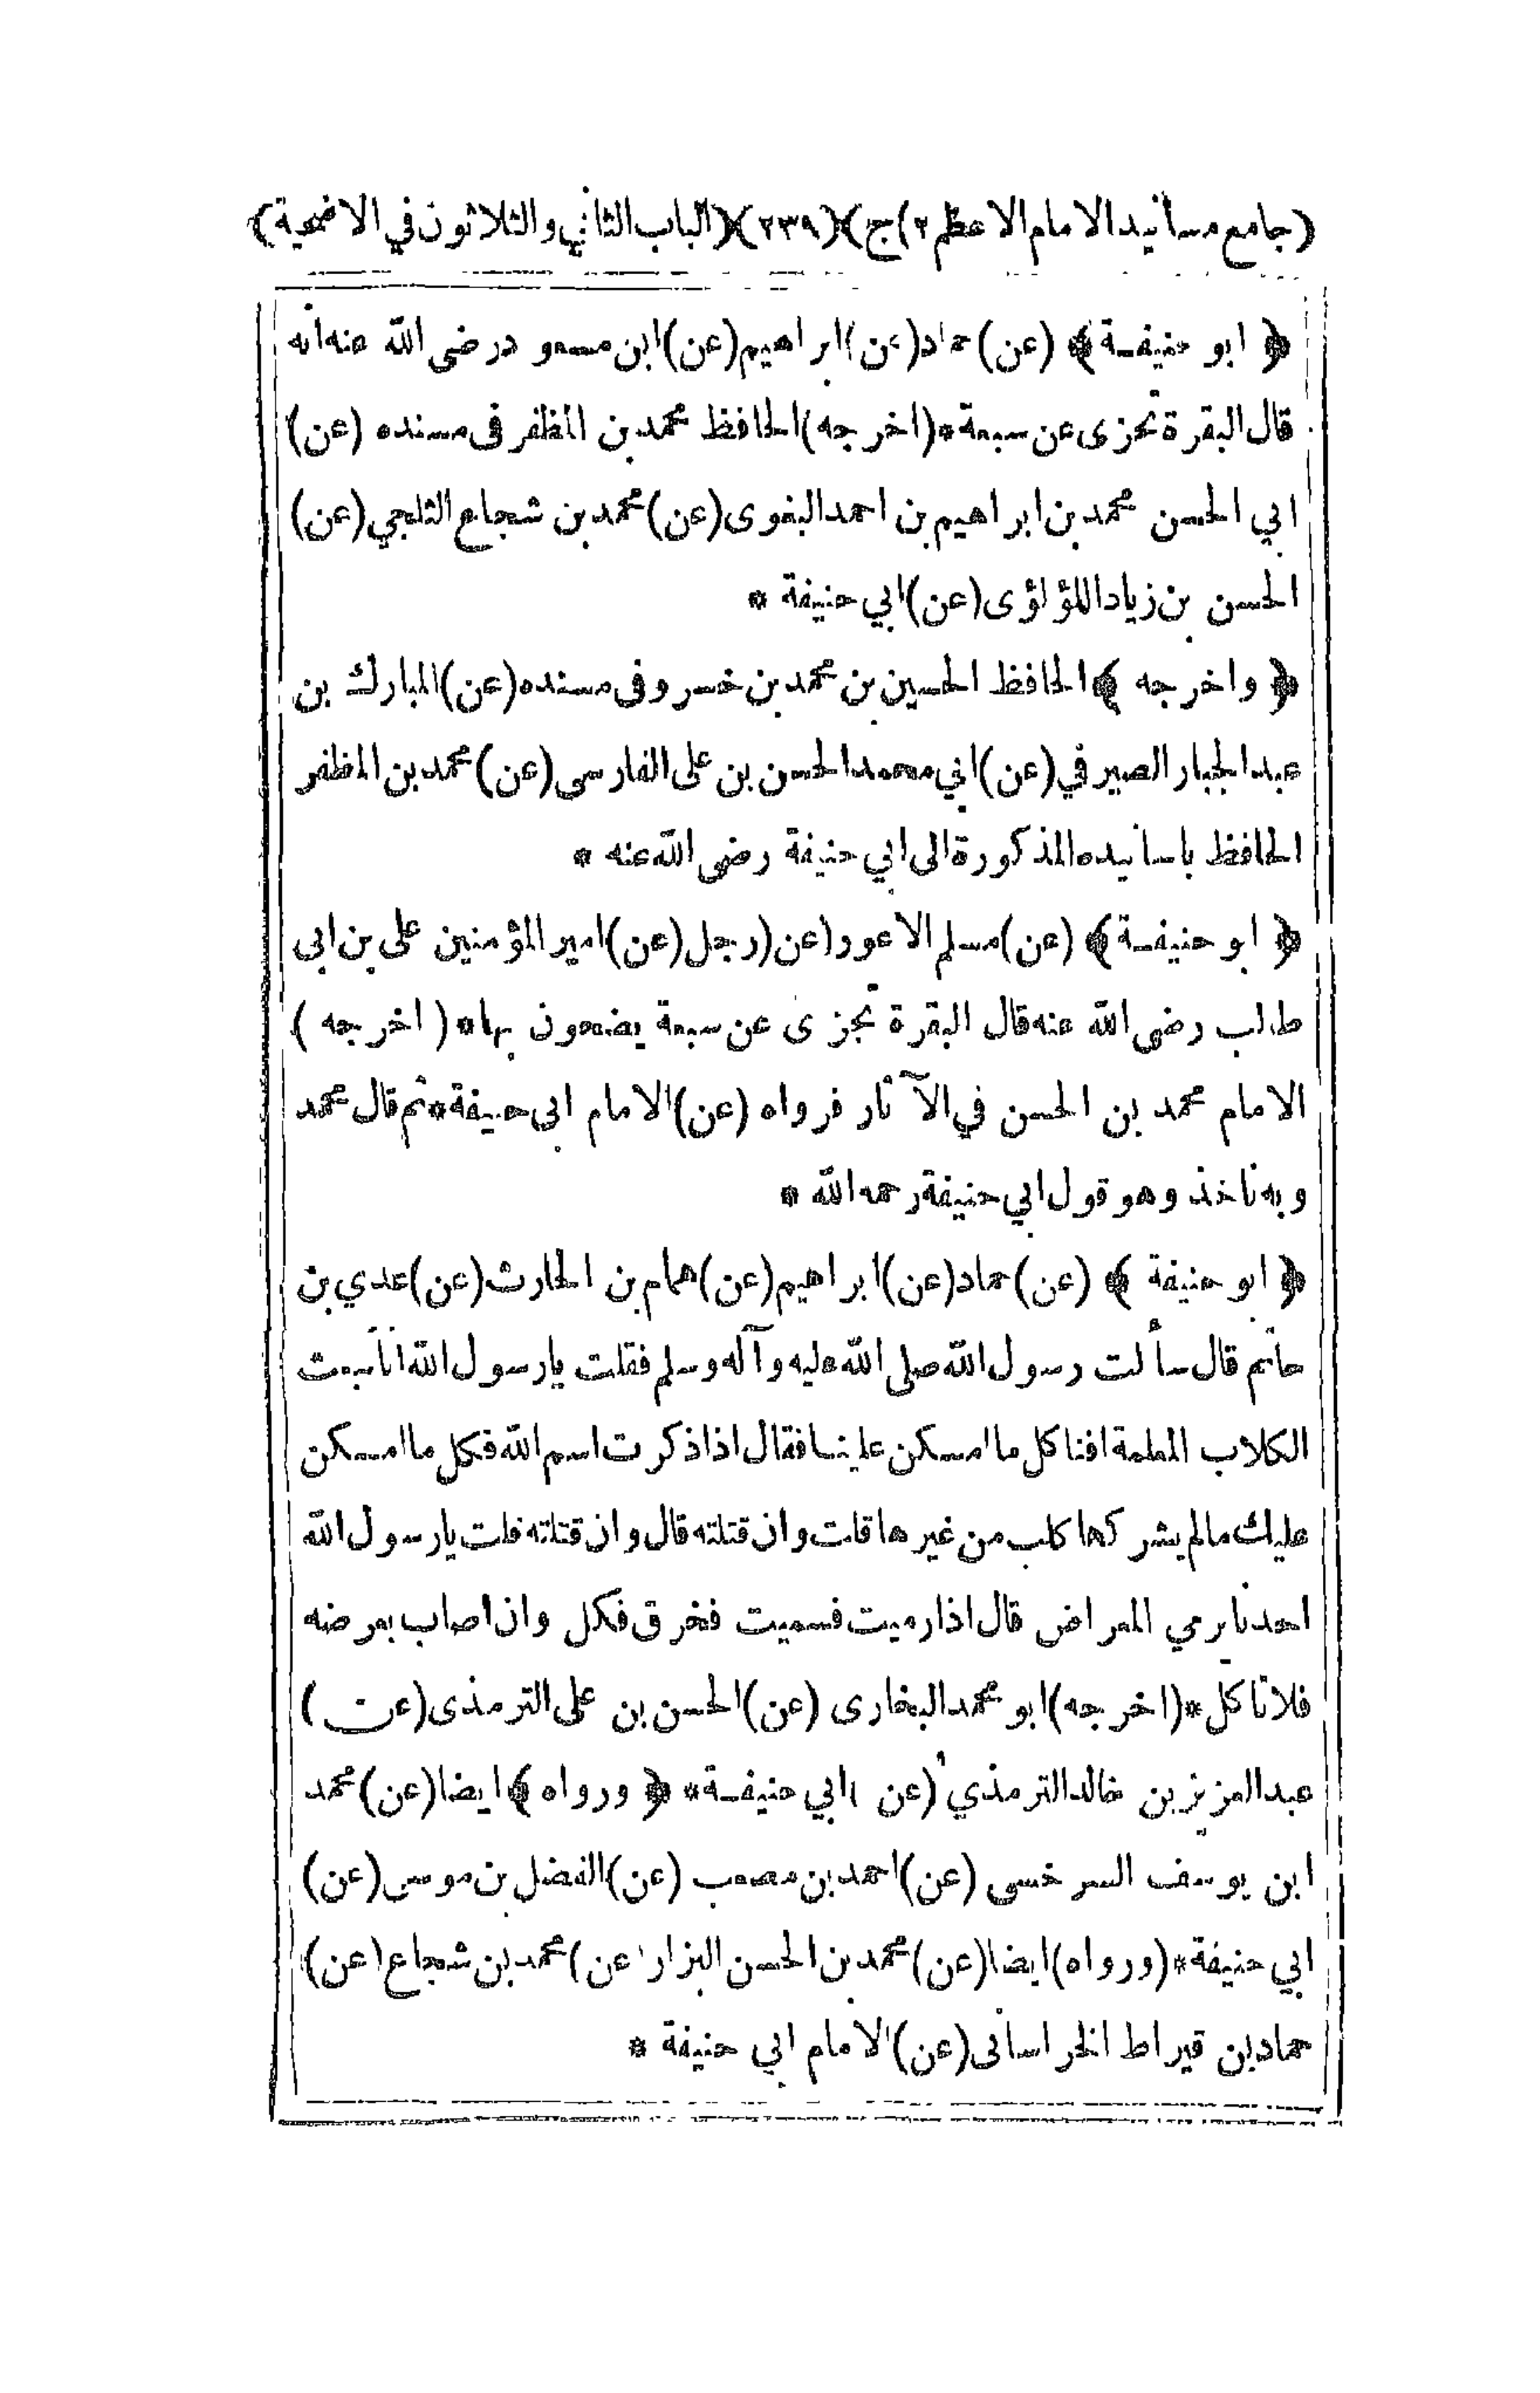 (جامع مسانيد الامام الاعظم ٢) ج) (٢٣٩) (الباب الثاني والثلاثون في الاضحية)
﴿ ابو حنيفة ﴾ (عن) حماد (عن) ابراهيم (عن) ابن مسعود رضى الله عنه انه
قال البقرة تجزى عن سبعة * (اخرجه) الحافظ محمد بن المظفر فى مسنده (عن)
ابي الحسن محمد بن ابراهيم بن احمد البغوى (عن) محمد بن شجاع الثلجي (عن)
الحسن بن زياد اللؤلؤى (عن) ابي حنيفة *
﴿ واخرجه ﴾ الحافظ الحسين بن محمد بن خسرو فى مسنده (عن) المبارك بن
عبد الجبار الصيرفي (عن) ابي محمد الحسن بن على الفارسى (عن) محمد بن المظفر
الحافظ باسانيده المذكورة الى ابي حنيفة رضى الله عنه *
﴿ ابو حنيفة ﴾ (عن) مسلم الاعور (عن) رجل (عن) امير المؤمنين على بن ابى
طالب رضى الله عنه قال البقرة تجزى عن سبعة يضحون بها * ( اخرجه )
الامام محمد بن الحسن في الآثار فرواه (عن) الامام ابى حنيفة * ثم قال محمد
وبه ناخذ وهو قول ابي حنيفة رحمه الله *
﴿ ابو حنيفة ﴾ (عن) حماد (عن) ابراهيم (عن) همام بن الحارث (عن) عدي بن
حاتم قال سألت رسول الله صلى الله عليه وآله وسلم فقلت يا رسول الله انا نبعث
الكلاب المعلمة افنا كل ما امسكن علينا فقال اذا ذكرت اسم الله فكل ما امسكن
عليك مالم يشركها كلب من غيرها قلت وان قتلته قال وان قتلته قلت يا رسول الله
احدنا يرمي المعراض قال اذا رميت فسميت فخرق فكل وان اصاب بعرضه
فلا تاكل * (اخرجه) ابو محمد البخارى (عن) الحسن بن على الترمذى (عن)
عبد العزيز بن خالد الترمذي (عن) ابي حنيفة * ﴿ ورواه ﴾ ايضا (عن) محمد
ابن يوسف السرخسى (عن) احمد بن مصعب (عن) الفضل بن موسى (عن)
ابي حنيفة * (ورواه) ايضا (عن) محمد بن الحسن البزار (عن) محمد بن شجاع (عن)
حماد بن قيراط الخراسانى (عن) الامام ابي حنيفة *